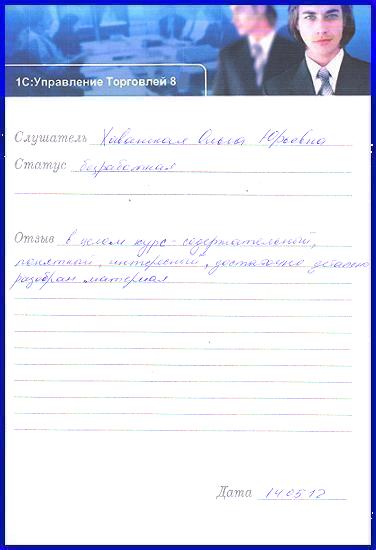 1С:Управление Торговлей 8
Слушатель Хованская Ольга Юрьевна
Статус безработная
Отзыв в целом курс - содержательный,
понятный, интересный, достаточно детально
разобран материал
Дата 14.05.12